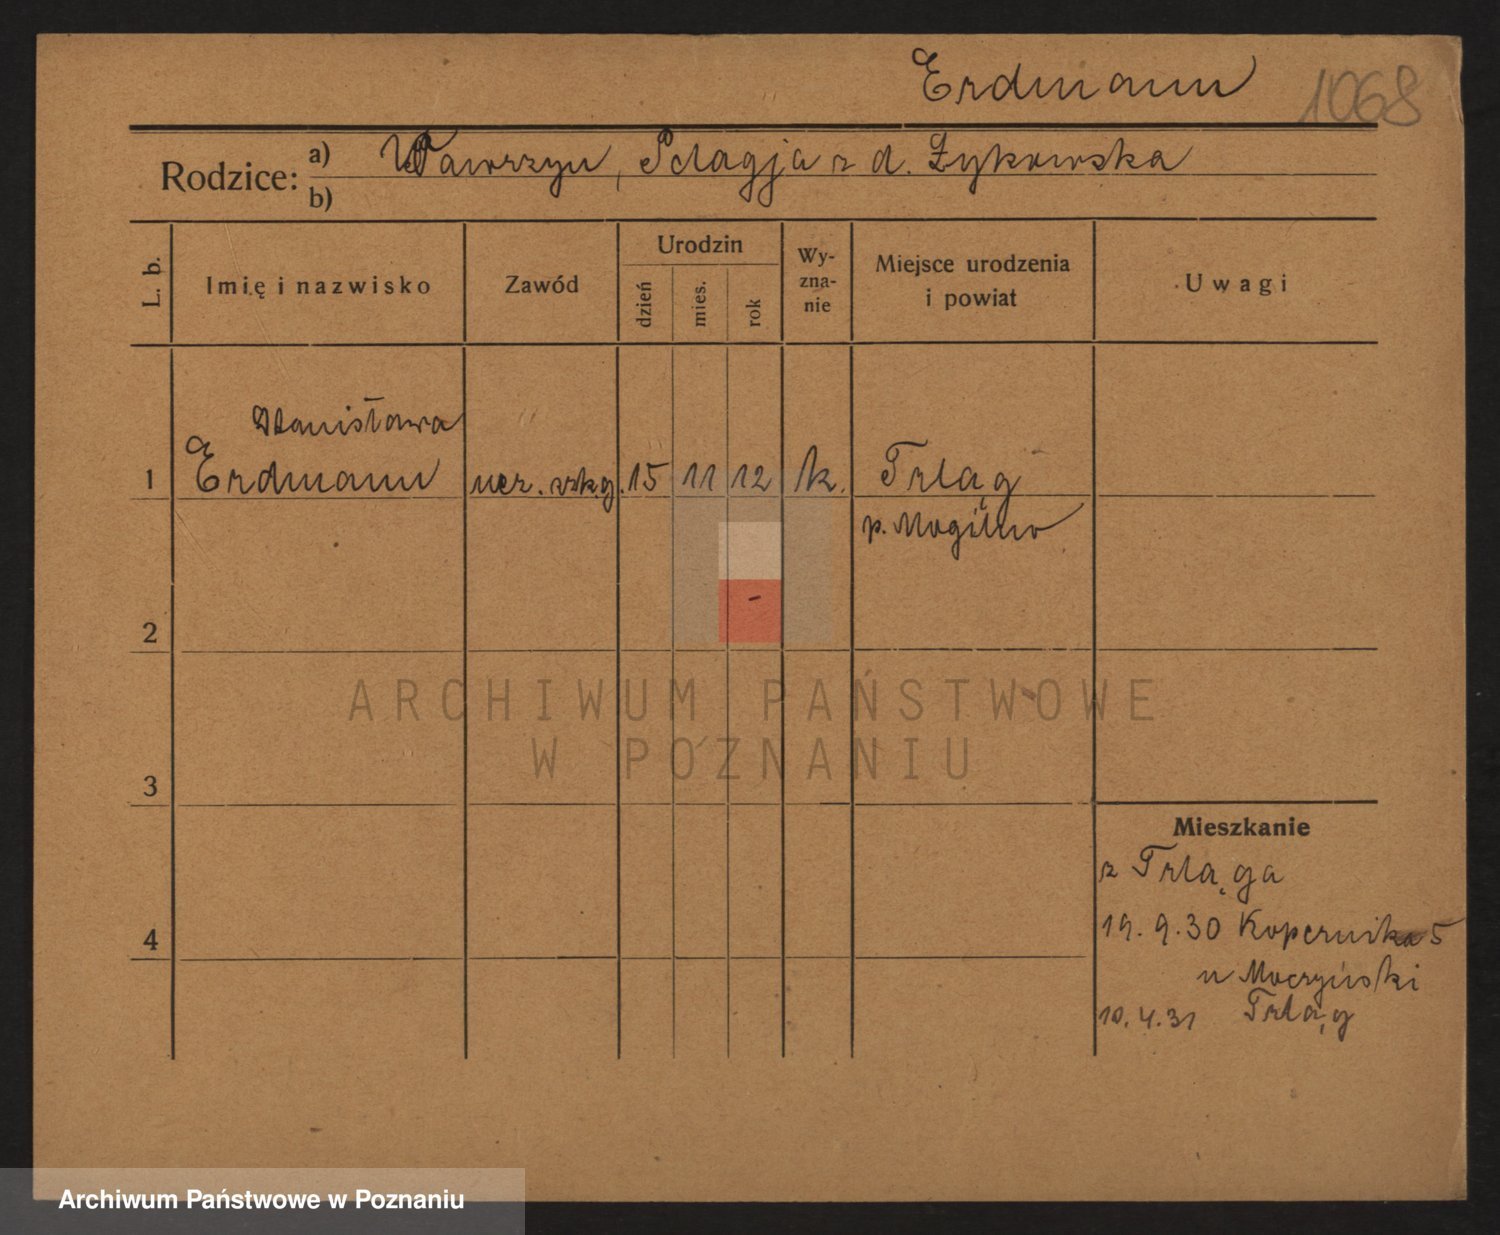 Erdmann 1068
Rodzice: a) Wawrzyn, Pelagja z d. Żykowska
b)
L. b. Imię i nazwisko Zawód Urodzin dzień mies. rok Wy-zna-nie Miejsce urodzenia i powiat Uwagi
Stanisława
1 Erdmann ucz. szk. g. 15 11 12 k. Trląg
p. Mogilno
2
ARCHIWUM PAŃSTWOWE
W POZNANIU
3
Mieszkanie
z Trląga
19. 9. 30 Kopernika 5
4
u Moczyński
10. 4. 31 Trląg
Archiwum Państwowe w Poznaniu